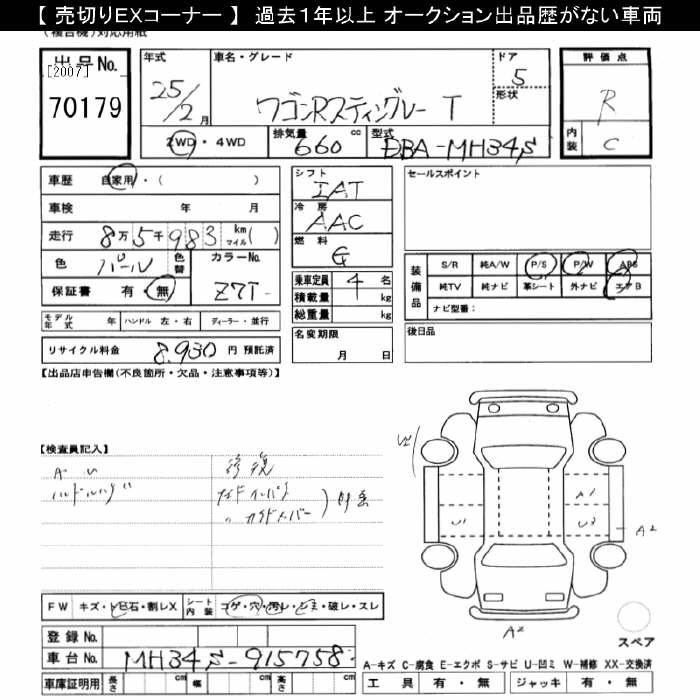 【 売切りEXコーナー 】 過去１年以上 オークション出品歴がない車両
(複合機)対応用紙
出品No.
[2007]
70179
年式
25/2月
車名・グレード
ワゴンRスティングレー T
ドア
5
形状
評価点
R
内装
C
2WD・4WD
排気量 660 cc
型式 DBA-MH34S
車歴 自家用・( )
車検 年 月
走行 8万5千983 km マイル( )
色 パール 色替 カラーNo. Z7T
保証書 有・無
シフト
IAT
冷房
AAC
燃料
G
乗車定員 4 名
積載量 kg
総重量 kg
セールスポイント
装備品
S/R 純A/W P/S P/W ABS
純TV 純ナビ 革シート 外ナビ エアB
ナビ型番：
モデル年式 年 ハンドル 左・右 ディーラー・並行
名変期限
月 日
後日品
リサイクル料金 8,930 円 預託済
【出品店申告欄(不良箇所・欠品・注意事項等)】
【検査員記入】
A U
修復
A1
U1
U3
A2
A2
FW キズ・トビ石・割レX シート内装 コゲ・穴・汚レ・シミ・破レ・スレ
登録No.
車台No. MH34S-915758
車庫証明用 長さ cm 幅 cm 高さ cm
スペア
A-キズ C-腐食 E-エクボ S-サビ U-凹ミ W-補修 XX-交換済
工具 有・無 ジャッキ 有・無